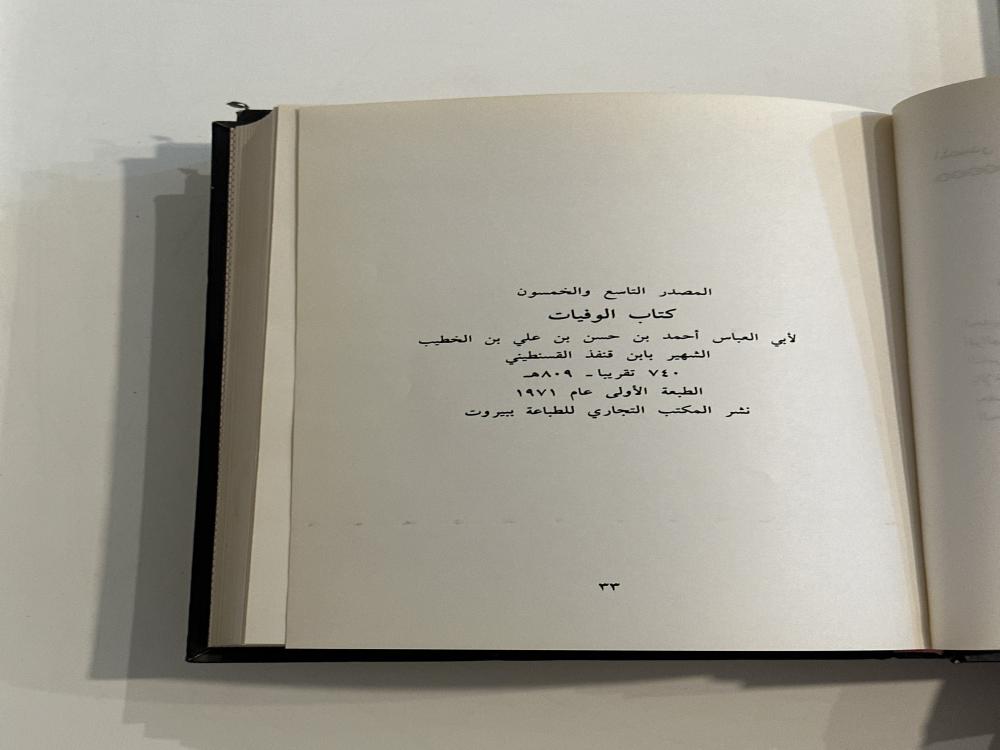 المصدر التاسع والخمسون
كتاب الوفيات
لأبي العباس أحمد بن حسن بن علي بن الخطيب
الشهير بابن قنفذ القسنطيني
٧٤٠ تقريبا ـ ٨٠٩هـ
الطبعة الأولى عام ١٩٧١
نشر المكتب التجاري للطباعة ببيروت
٣٣